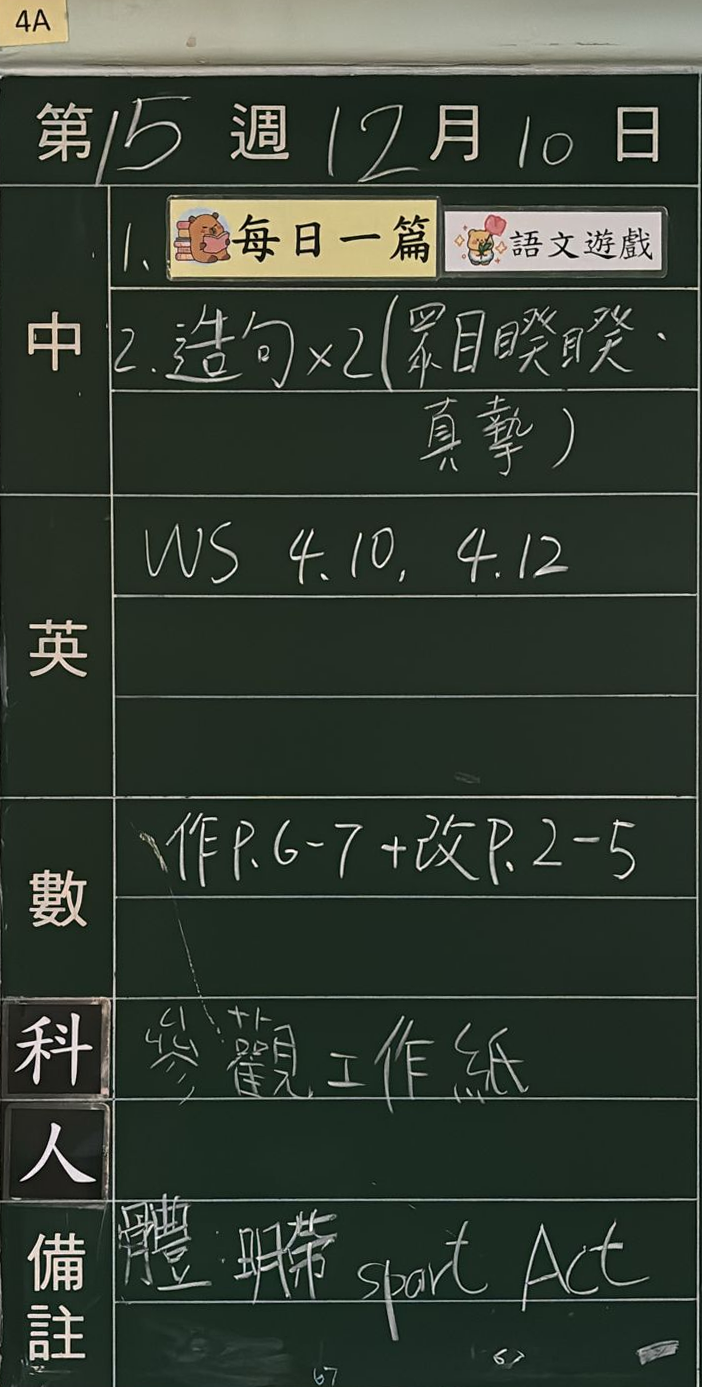 4A
第15週12月10日
中
1. 每日一篇 語文遊戲
2. 造句×2(眾目睽睽、
真摯)
英
WS 4.10, 4.12
數
作P.6-7+改P.2-5
科
參觀工作紙
人
備註
體：明帶 sport Act
67
67